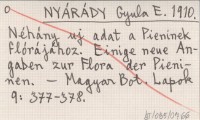 NYÁRÁDY Gyula E. 1910.
Néhány uj adat a Pieninek
flórájához. Einige neue An-
gaben zur Flora der Pieni-
nen. – Magyar Bot. Lapok
9: 377-378.